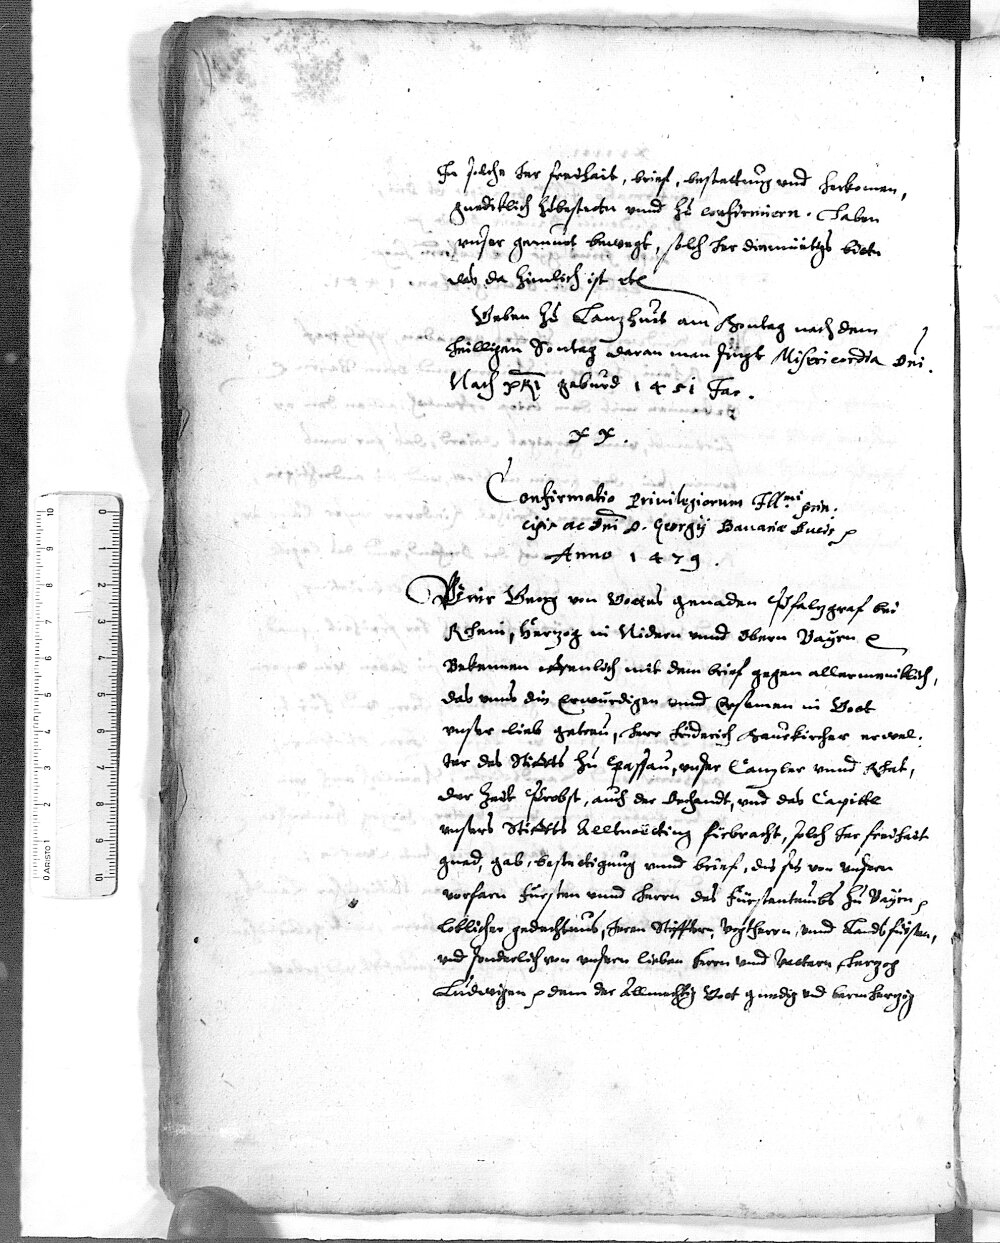 In solche her freihait, brief, bestettung und herkomen,
gnediklich zubestetn unnd zu confirmiern. Haben
unser gemuet bewegt, solch her diemüetigs bitt
das da zimlich ist etc
Geben zu Lanzhuet am Montag nach dem
heilligen Sontag daran man singt Misericordia Dni.
Nach xpi geburd 1451 Jar.
XX.
Confirmatio privilegiorum Illmi prin-
cipis ac Dni D. Georgij Bavariæ Ducis
Anno 1479.
Wir Georg von Gottes genaden Pfalzgraf bei
Rhein, Herzog in Nidern unnd Obern Bayrn etc
Bekennen offenlich mit dem brief gegen allermeniklich,
das unns die Erwürdigen unnd Ersamen in Gott
unser lieb getreu, herr Friderich Maurkircher erwel-
ter des Stiffts zu Passau, unser Canzler unnd Rhat,
der Zeit Probst, auch der Dechandt, und das Capittl
unsers Stiffts Alltnötting fürbracht, solch her freihait
gnad, gab, bestetigung unnd brief, die sy von unsern
vorfarn Fürsten unnd herrn des Fürstentumbs zu Bayrn
loblicher gedechtnus, hern Stiffttern, Vogtherrn, unnd Landsfürsten,
und sonderlich von unsern lieben herrn und vattern herzog
Ludwigen dem der Allmechtig Gott gnedig und barmherzig